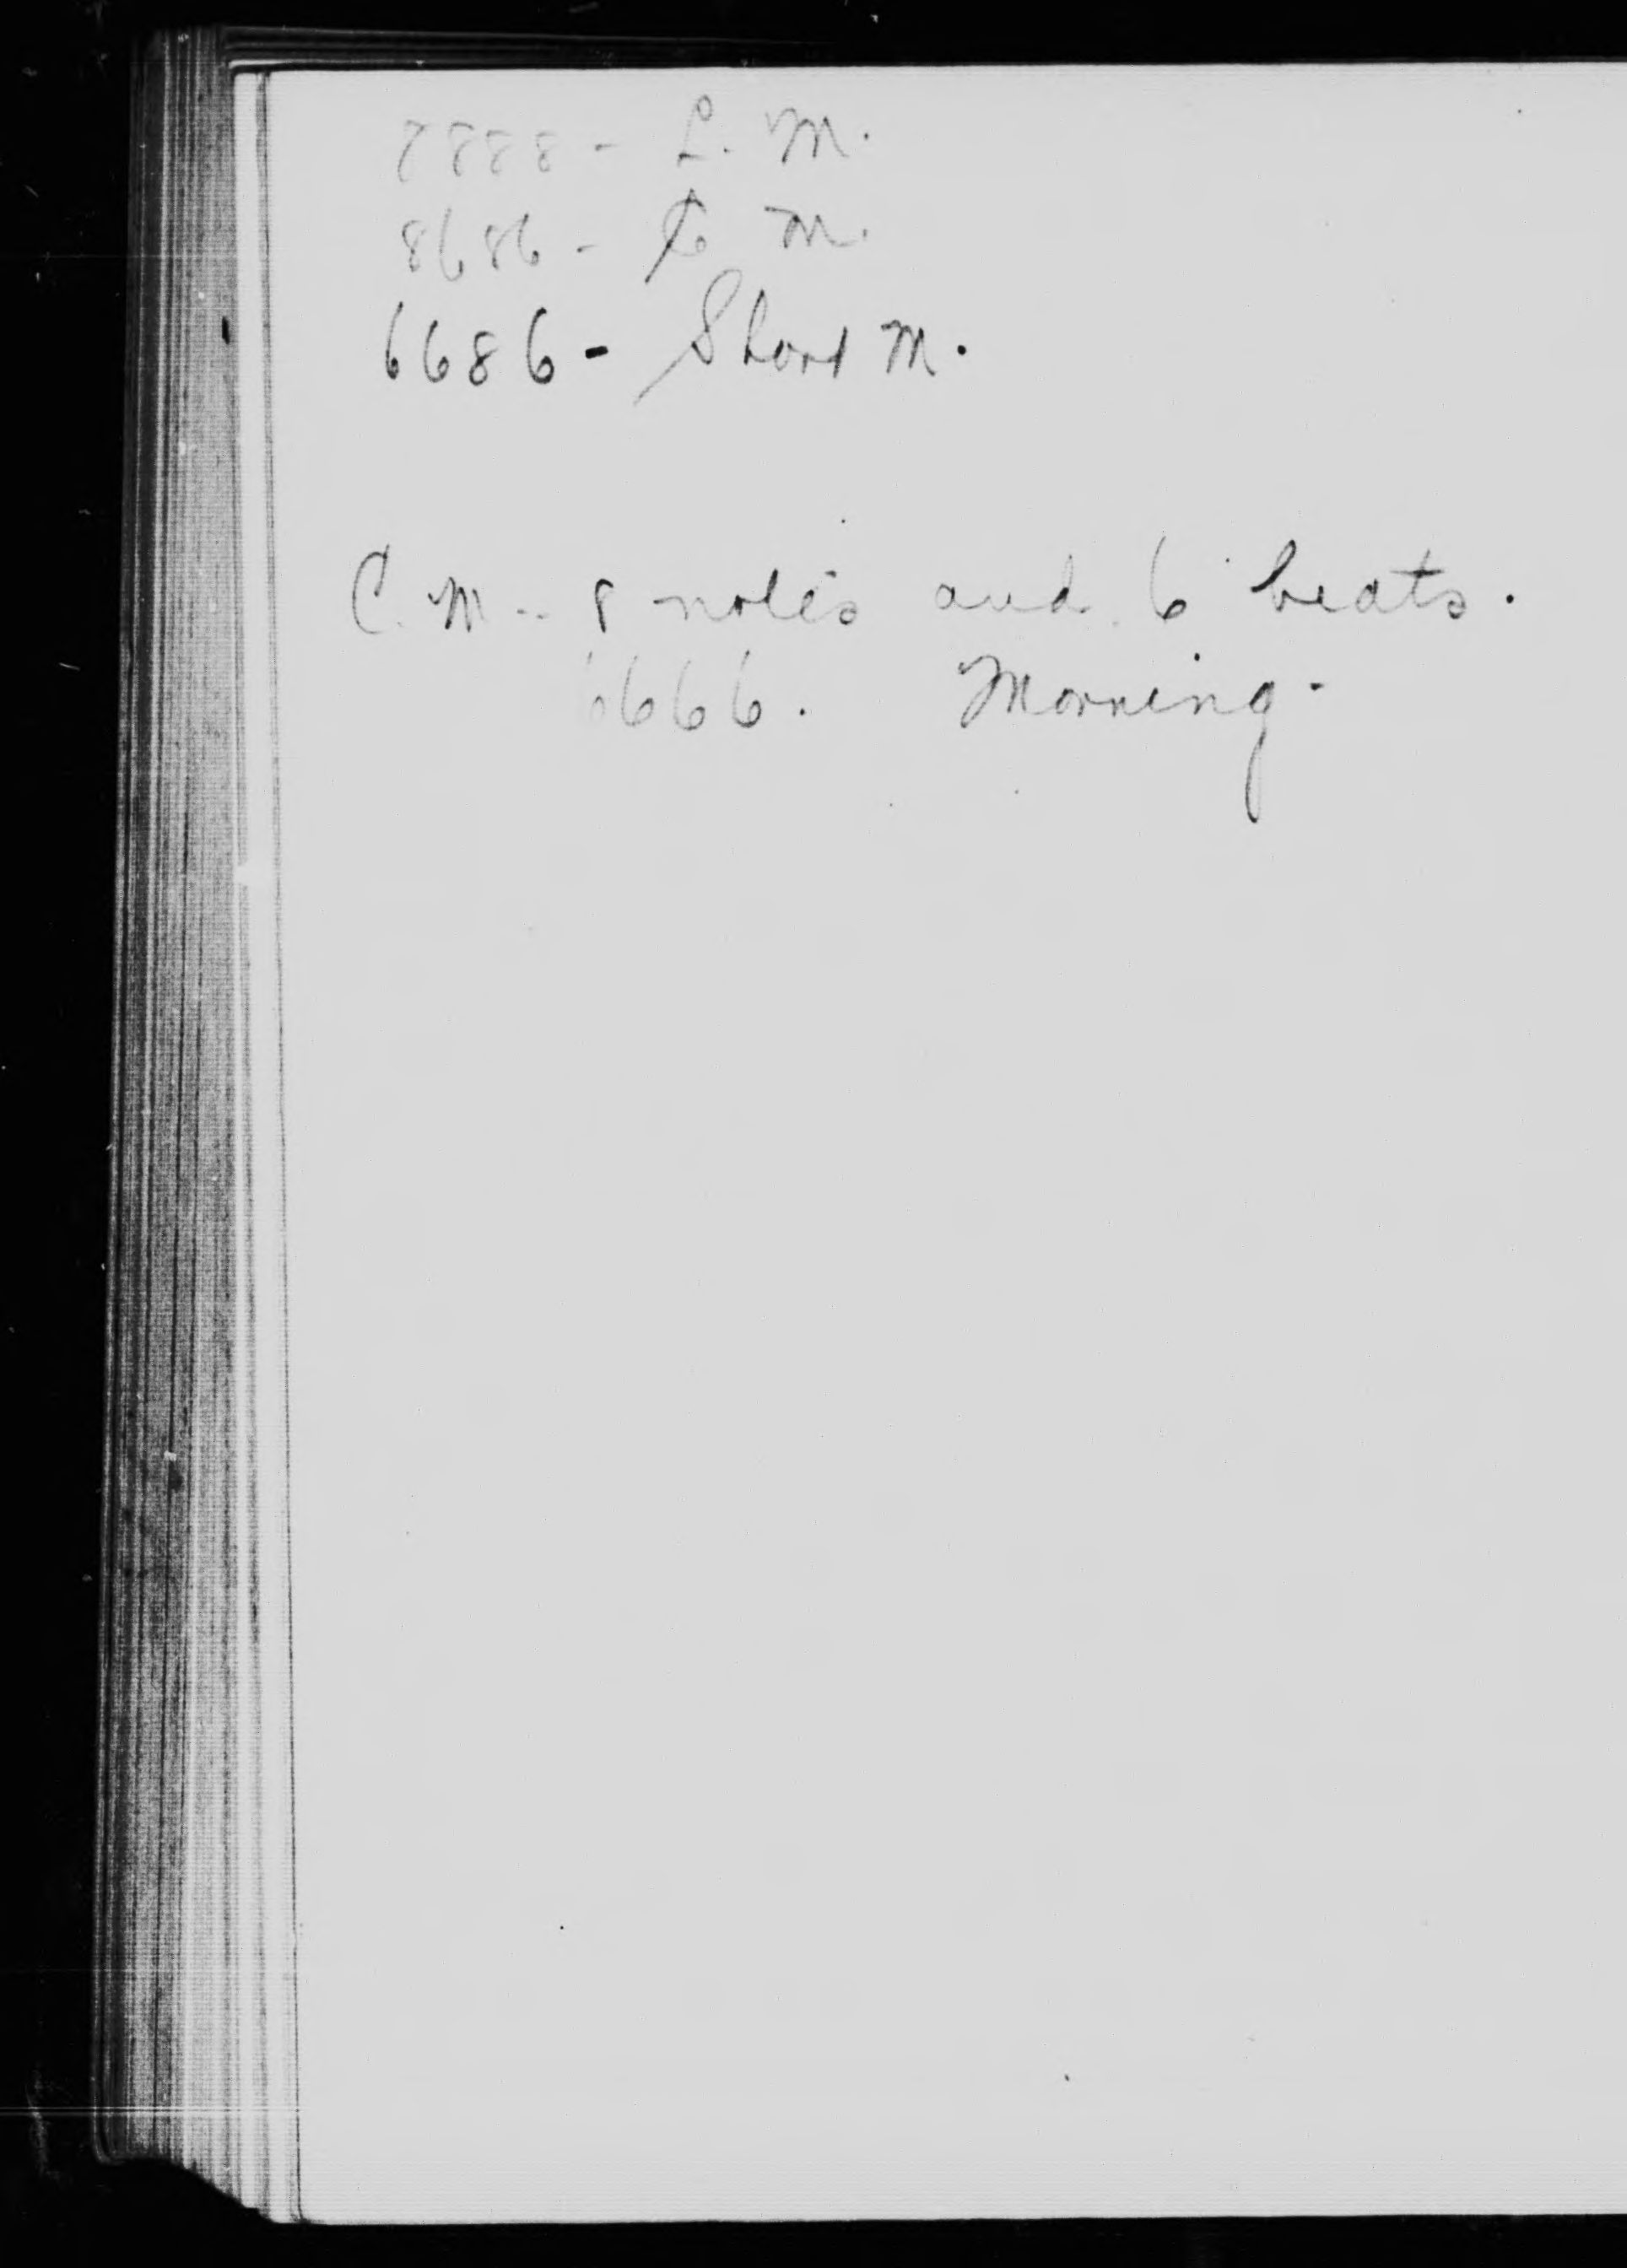 8888 - L. M.
8686 - C M.
6686 - Short M.
C. M - 8 notes and 6 beats.
6666. Morning.